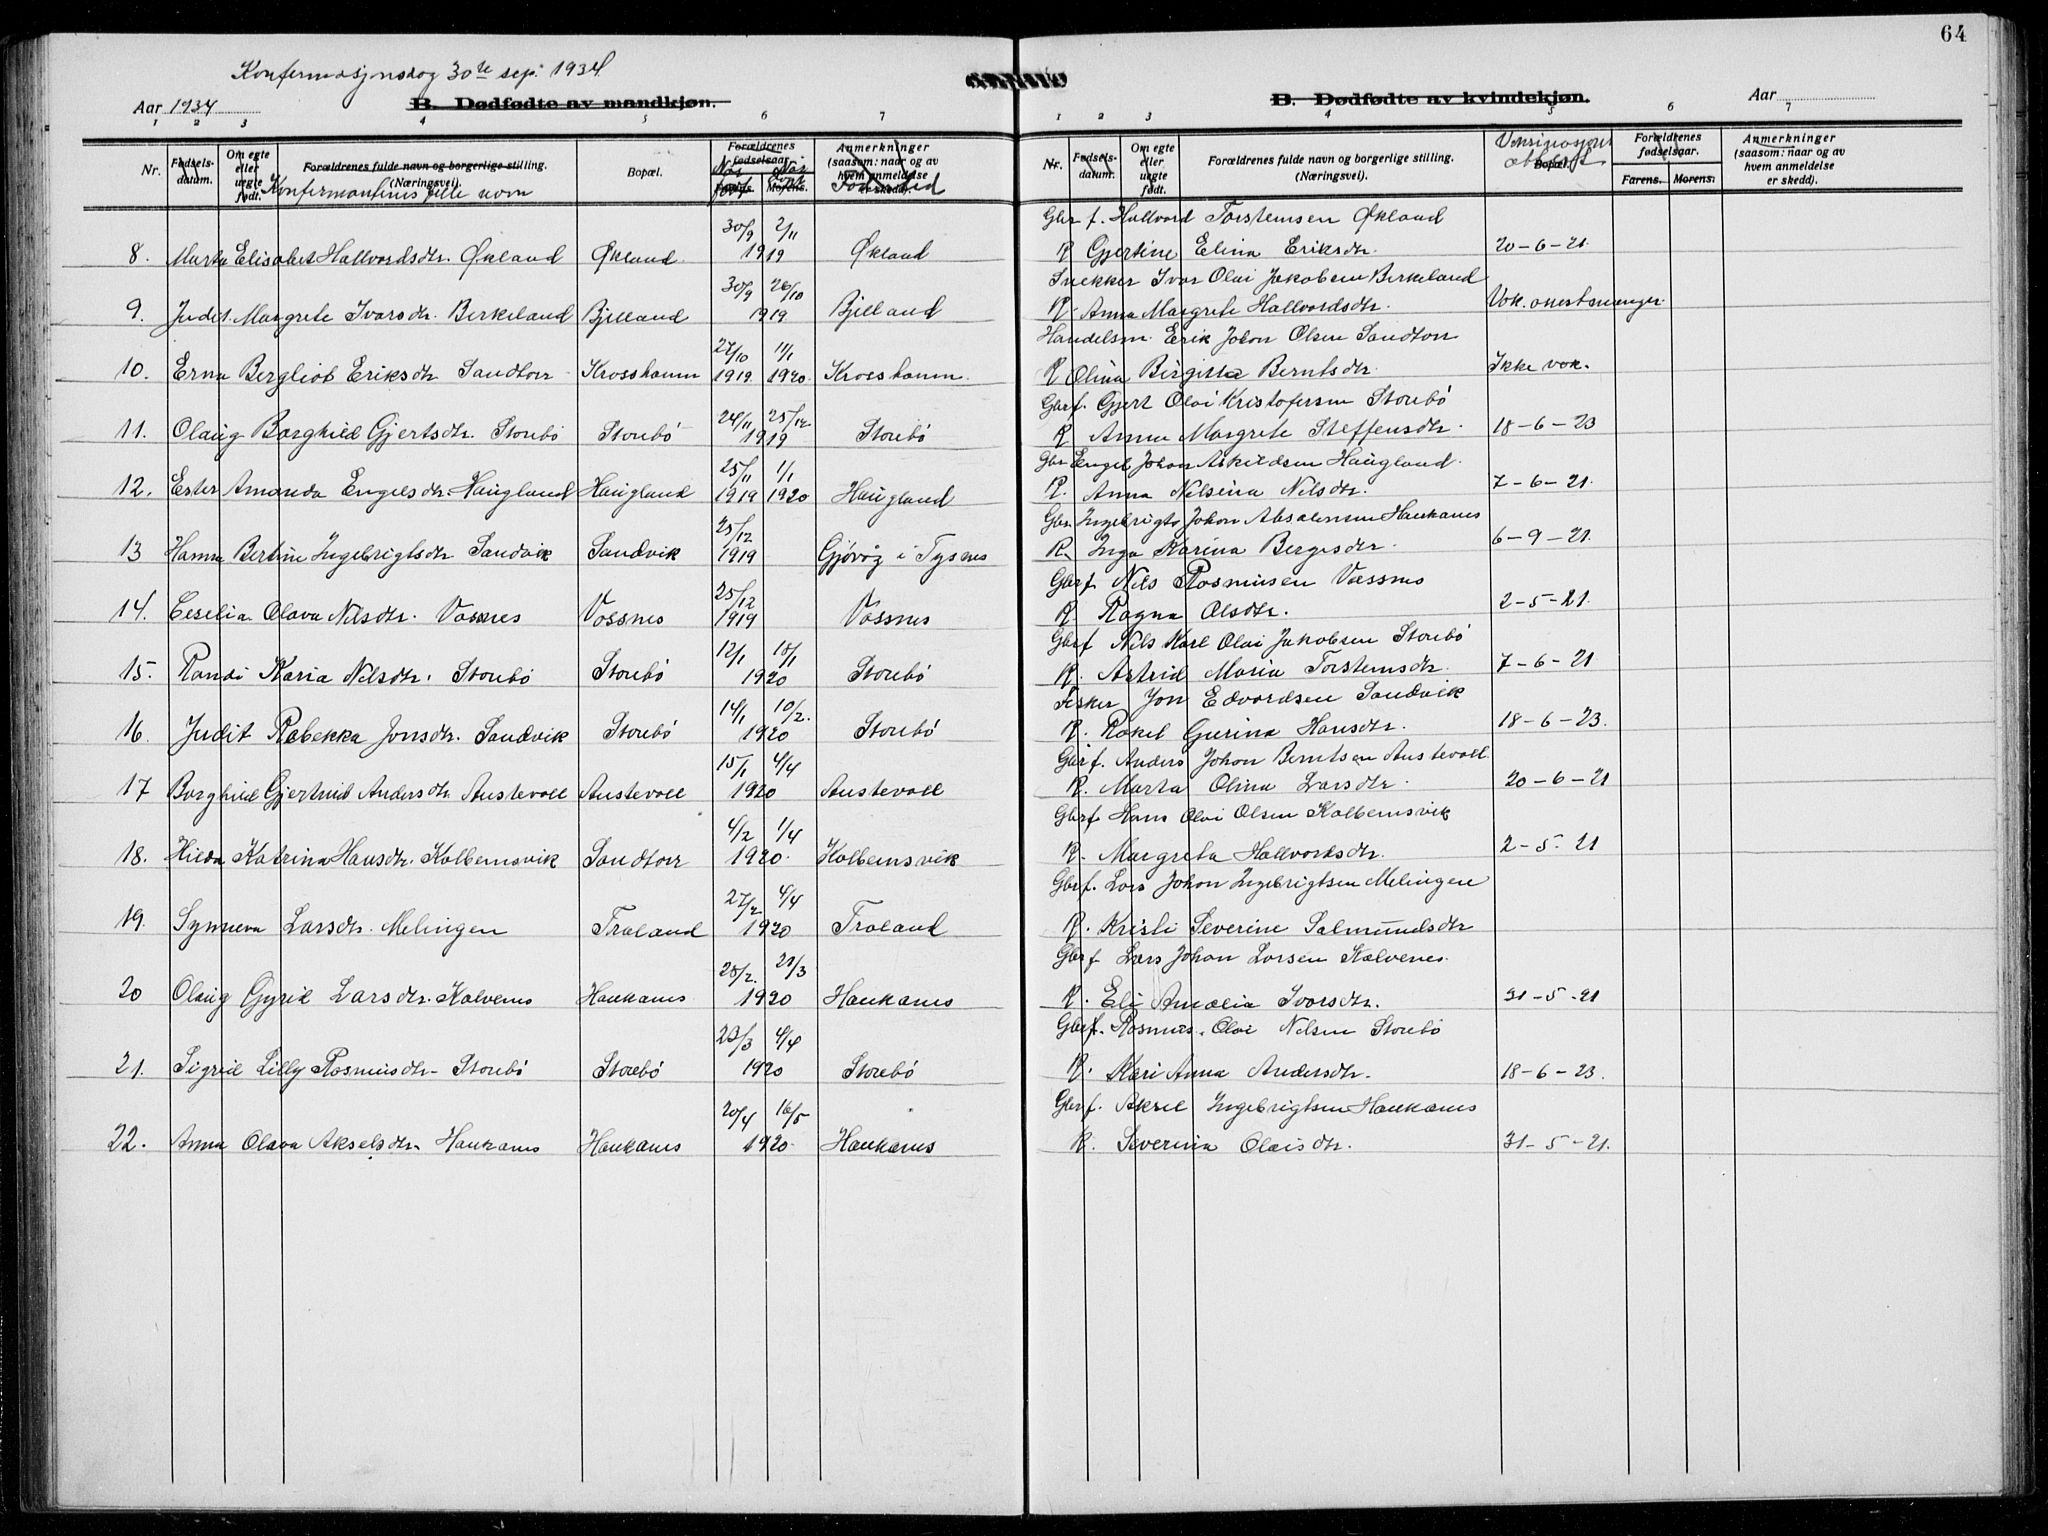 64
Konfermasjonsdag 30te sep. 1934.
Aar 1934
B. Dødfødte av mandkjøn.
1 2 3 4 5 6 7
Nr. Fødsels-datum. Om egte eller uegte født. Forældrenes fulde navn og borgerlige stilling. (Næringsvei). Bopæl. Forældrenes fødselsaar. Farens. Morens. Anmerkninger (saasom: naar og av hvem anmeldelse er skedd).
Konfermantenes fulle navn Når født Når døpt Fødested
8. Marta Elisabet Hallvordsdtr. Økland Økland 30/9 2/11 1919 Økland
9. Judit Margrete Ivarsdtr. Birkeland Bjelland 30/9 26/10 1919 Bjelland
10. Erna Bergliot Eriksdtr Sandtorr Krosshamn 27/10 1919 11/1 1920 Krosshamn
11. Olaug Borghild Gjertsdtr. Storebö Storebö 24/11 25/12 1919 Storebö
12. Ester Amanda Engelsdtr. Haugland Haugland 25/11 1919 1/1 1920 Haugland
13 Hanna Bertine Ingebrigtsdtr Sandvik Sandvik 25/12 1919 Gjövåg i Tysnes
14. Ceselia Olava Nilsdtr. Vassnes Vassnes 25/12 1919 Vassnes
15. Randi Karia Nilsdtr. Storebö Storebö 12/1 18/1 1920 Storebö
16. Judit Rebekka Jonsdtr. Sandvik Storebö 14/1 10/2. 1920 Storebö
17 Borghild Gjertrud Andersdtr Austevoll Austevoll 15/1 4/4 1920 Austevoll
18. Hilda Katrina Hansdtr. Kolbeinsvik Sandtorr 4/2 1/4 1920. Kolbeinsvik
19. Synneva Larsdtr. Melingen Troland 27/2 4/4 1920 Troland
20 Olaug Gyril Larsdtr. Kalvenes Haukanes 28/2. 21/3 1920 Haukanes
21. Sigrid Lilly Rasmusdtr. Storebö Storebö 23/3 4/4 1920 Storebö
22. Anna Olava Akselsdtr. Haukanes Haukanes 20/4 16/5 1920. Haukanes
B. Dødfødte av kvindekjøn.
Aar
1 2 3 4 5 6 7
Nr. Fødsels-datum. Om egte eller uegte født. Forældrenes fulde navn og borgerlige stilling. (Næringsvei). Bopæl. Forældrenes fødselsaar. Farens. Morens. Anmerkninger (saasom: naar og av hvem anmeldelse er skedd).
Vaksinasjons attest
Gbr f. Hallvard Torsteinsen Økland
K Gjertine Elina Eriksdtr. 20-6-21.
Snekker Ivar Olai Jakobsen Birkeland
K. Anna Margrete Hallvordsdtr. Vak. attest mangler.
Handelsm. Erik Johan Olsen Sandtorr
K Olina Birgitta Berntsdtr. Ikke vak.
Gbrf. Gjert Olai Kristofersen Storebö
K Anna Margrete Steffensdtr. 18-6-23
Gbr Engel Johan Askildsen Haugland.
K. Anna Nilsina Nilsdtr. 7-6-21.
Gbr. Ingebrigt Johan Absalonsen Haukanes
K. Inga Karina Bergesdtr. 6-9-21.
Gbrf Nils Rasmusen Vassnes
K Ragna Olsdtr. 2-5-21.
Gbrf Nils Karl Olai Jakobsen Storebö
K. Astrid Maria Torsteinsdtr. 7-6-21
Fisker Jon Edvardsen Sandvik
K. Rakel Gurina Hansdtr. 18-6-23.
Gbrf. Anders Johan Berntsen Austevoll.
K. Marta Olina Larsdtr. 20-6-21
Gbrf Hans Olai Olsen Kolbeinsvik
K. Margreta Hallvordsdtr. 2-5-21
Gbrf. Lars Johan Ingebrigtsen Melingen
K. Kristi Severine Salmundsdtr
Gbrf Lars Johan Larsen Kalvenes.
K. Eli Amalia Ivarsdtr. 31-5-21
Gbrf. Rasmus Olai Nilsen Storebö
K. Kari Anna Andersdtr. 18-6-23.
Gbrf. Aksel Ingebrigtsen Haukanes
K. Severina Olaisdtr. 31-5-21.